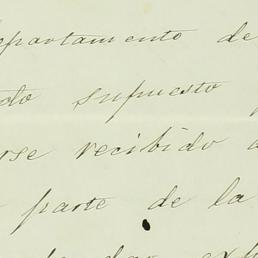 epartamento de
do supuesto
rse recibido
parte de la